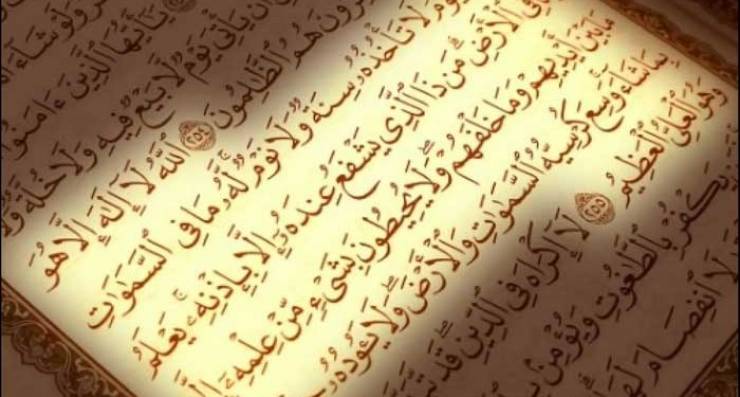 وَلَوْ شَآءَ
يَٰٓأَيُّهَا ٱلَّذِينَ ءَامَنُوٓا۟
أَن يَأْتِىَ يَوْمٌ لَّا بَيْعٌ فِيهِ وَلَا خُلَّةٌ وَلَا
هُمُ ٱلظَّٰلِمُونَ ٢٥٤ ٱللَّهُ لَآ إِلَٰهَ إِلَّا هُوَ
لَا تَأْخُذُهُۥ سِنَةٌ وَلَا نَوْمٌ ۚ لَّهُۥ مَا فِى ٱلسَّمَٰوَٰتِ
فِى ٱلْأَرْضِ ۗ مَن ذَا ٱلَّذِى يَشْفَعُ عِندَهُۥٓ إِلَّا بِإِذْنِهِۦ ۚ يَعْلَمُ
مَا بَيْنَ أَيْدِيهِمْ وَمَا خَلْفَهُمْ ۖ وَلَا يُحِيطُونَ بِشَىْءٍ مِّنْ عِلْمِهِۦٓ
بِمَا شَآءَ ۚ وَسِعَ كُرْسِيُّهُ ٱلسَّمَٰوَٰتِ وَٱلْأَرْضَ ۖ وَلَا يَـُٔودُهُۥ
وَهُوَ ٱلْعَلِىُّ ٱلْعَظِيمُ ٢٥٥ لَآ إِكْرَاهَ فِى ٱلدِّينِ ۖ قَد
يَكْفُرْ بِٱلطَّٰغُوتِ وَيُؤْمِنۢ
لَا ٱنفِصَامَ لَهَا